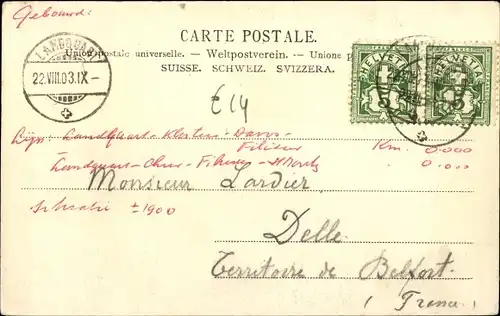 Gebouwd:
CARTE POSTALE.
Union postale universelle. — Weltpostverein. — Unione p
SUISSE. SCHWEIZ. SVIZZERA.
LANDQUART
22.VIII.03.IX–
HELVETIA HELVETIA
5 5
E14
Landquart - Klosters - Davos -
Filisur Km. 0.000
Landquart - Chur - Filisur - St Moritz 0.000
Monsieur Lardier,
± 1900
Delle
Territoire de Belfort.
(France